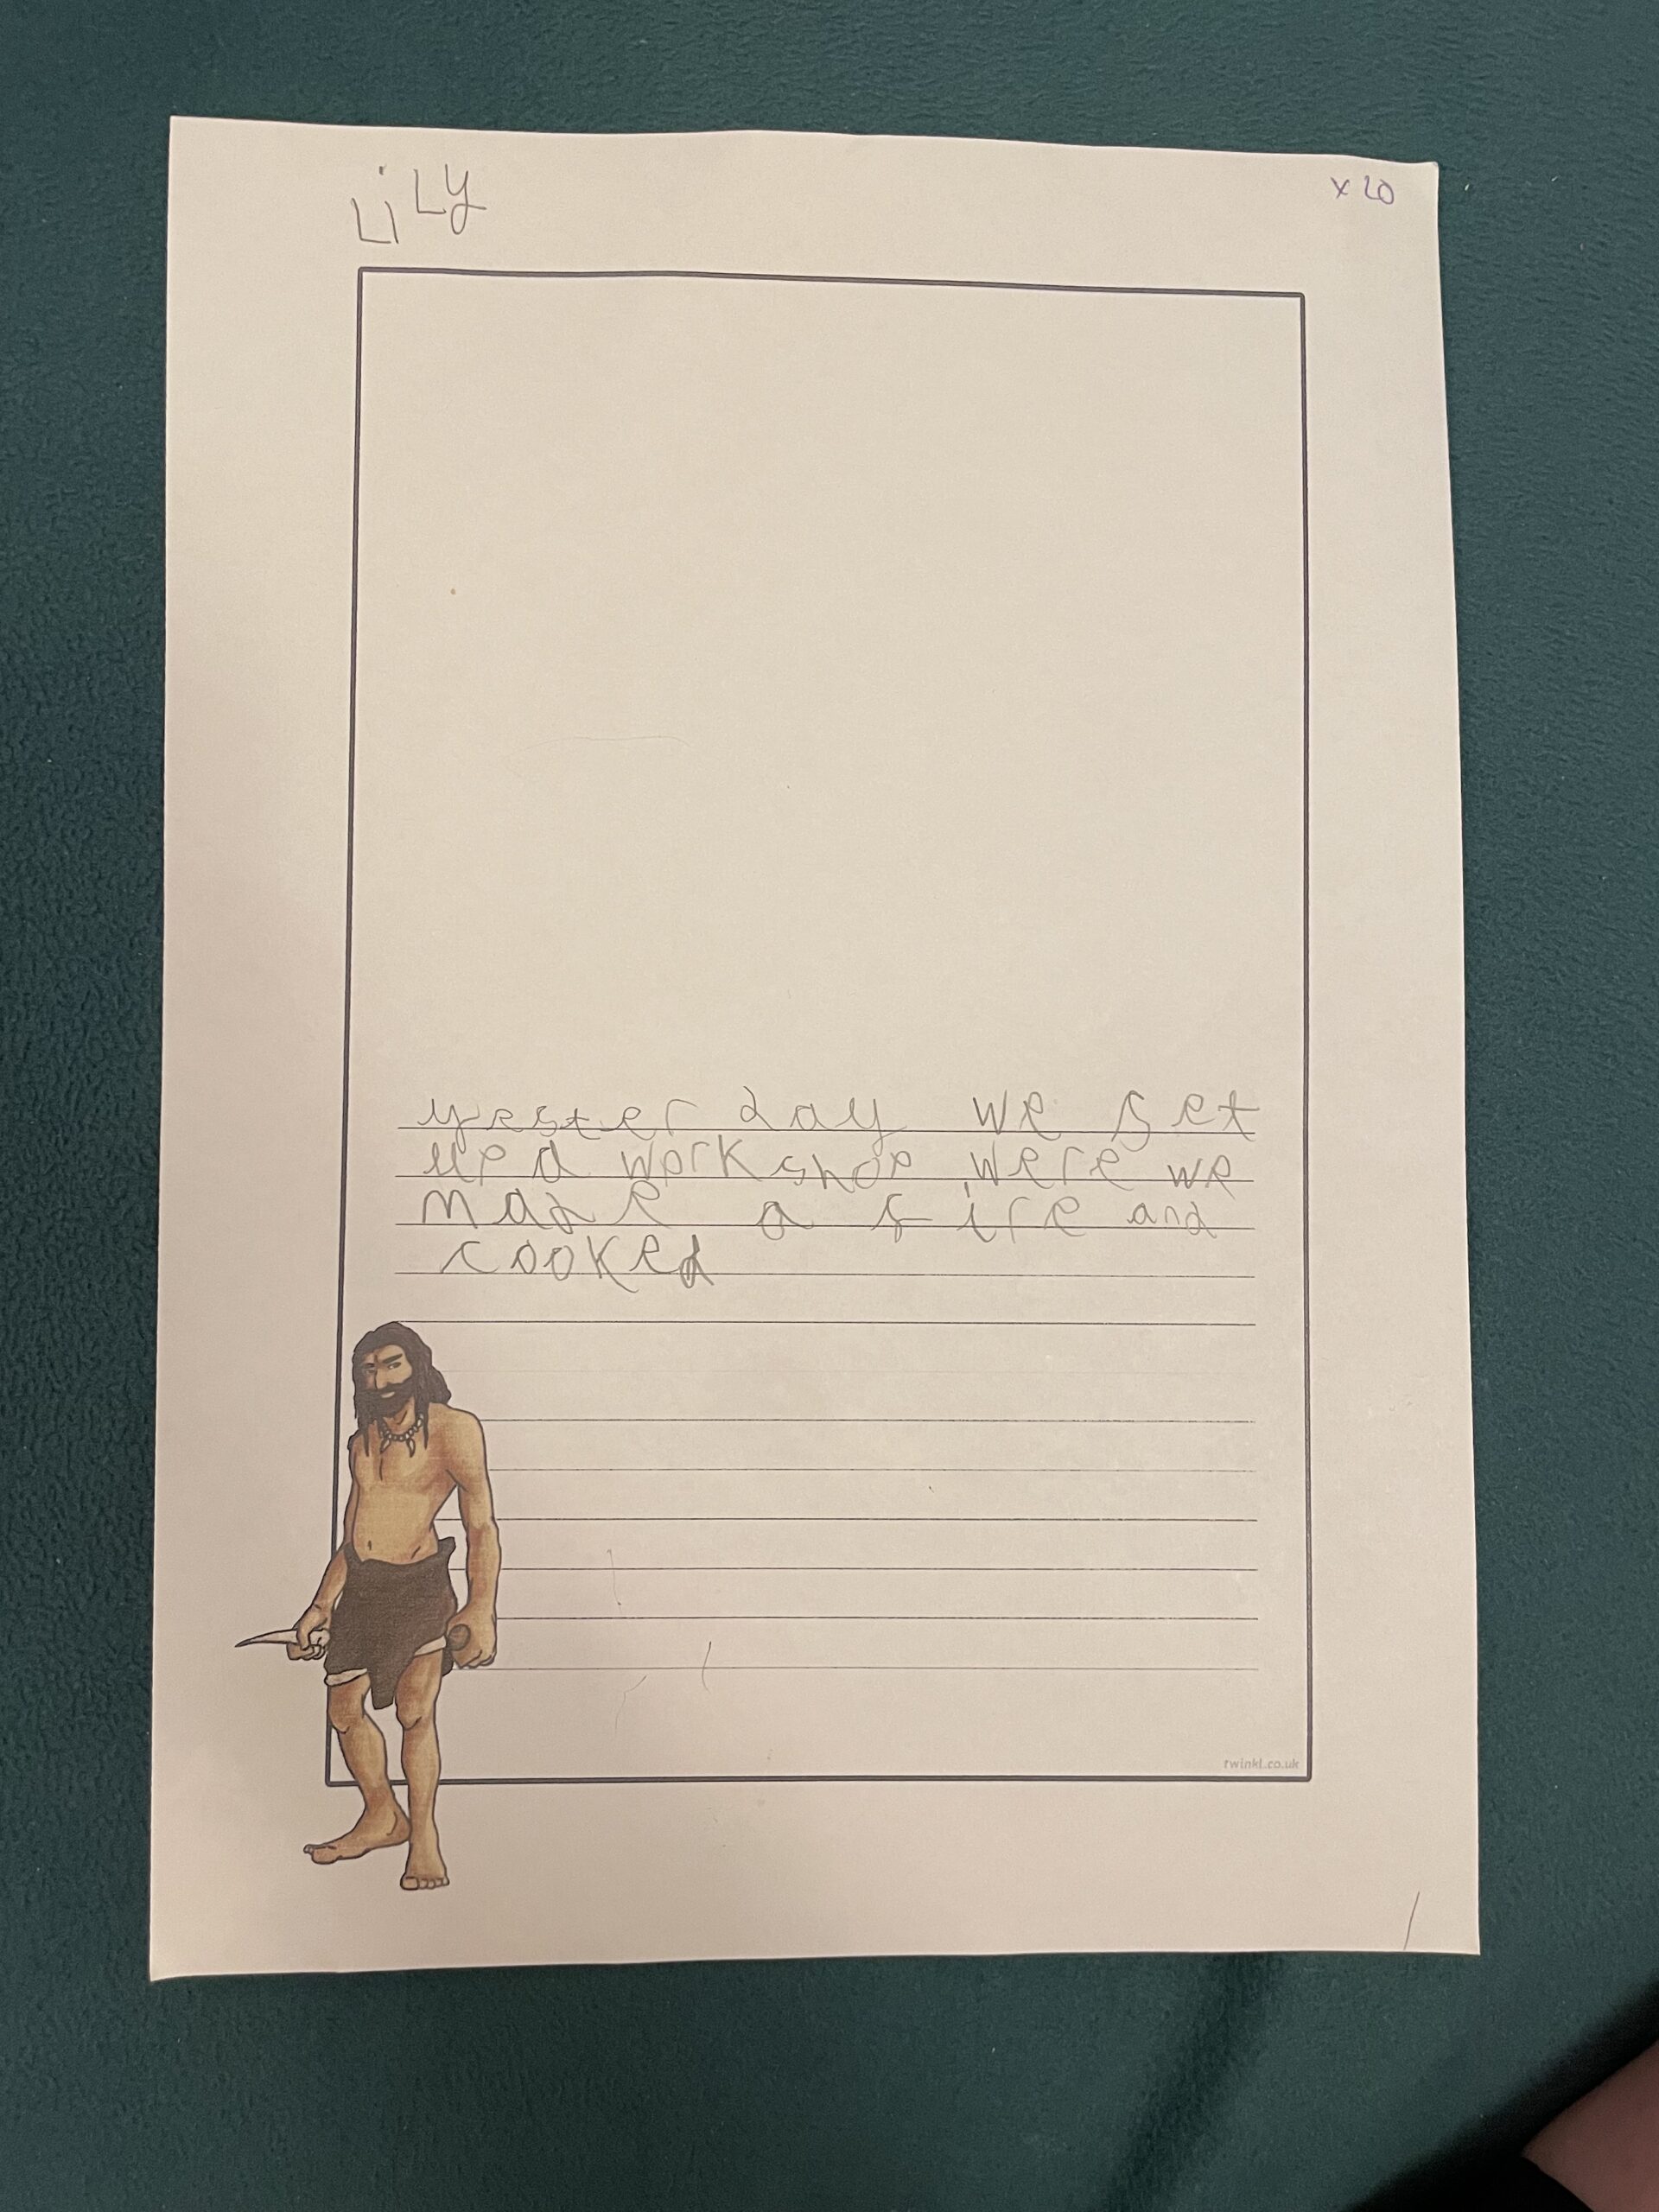 LiLy
x 20
yester day we set
up a work shop were we
made a fire and
cooked
twinkl.co.uk